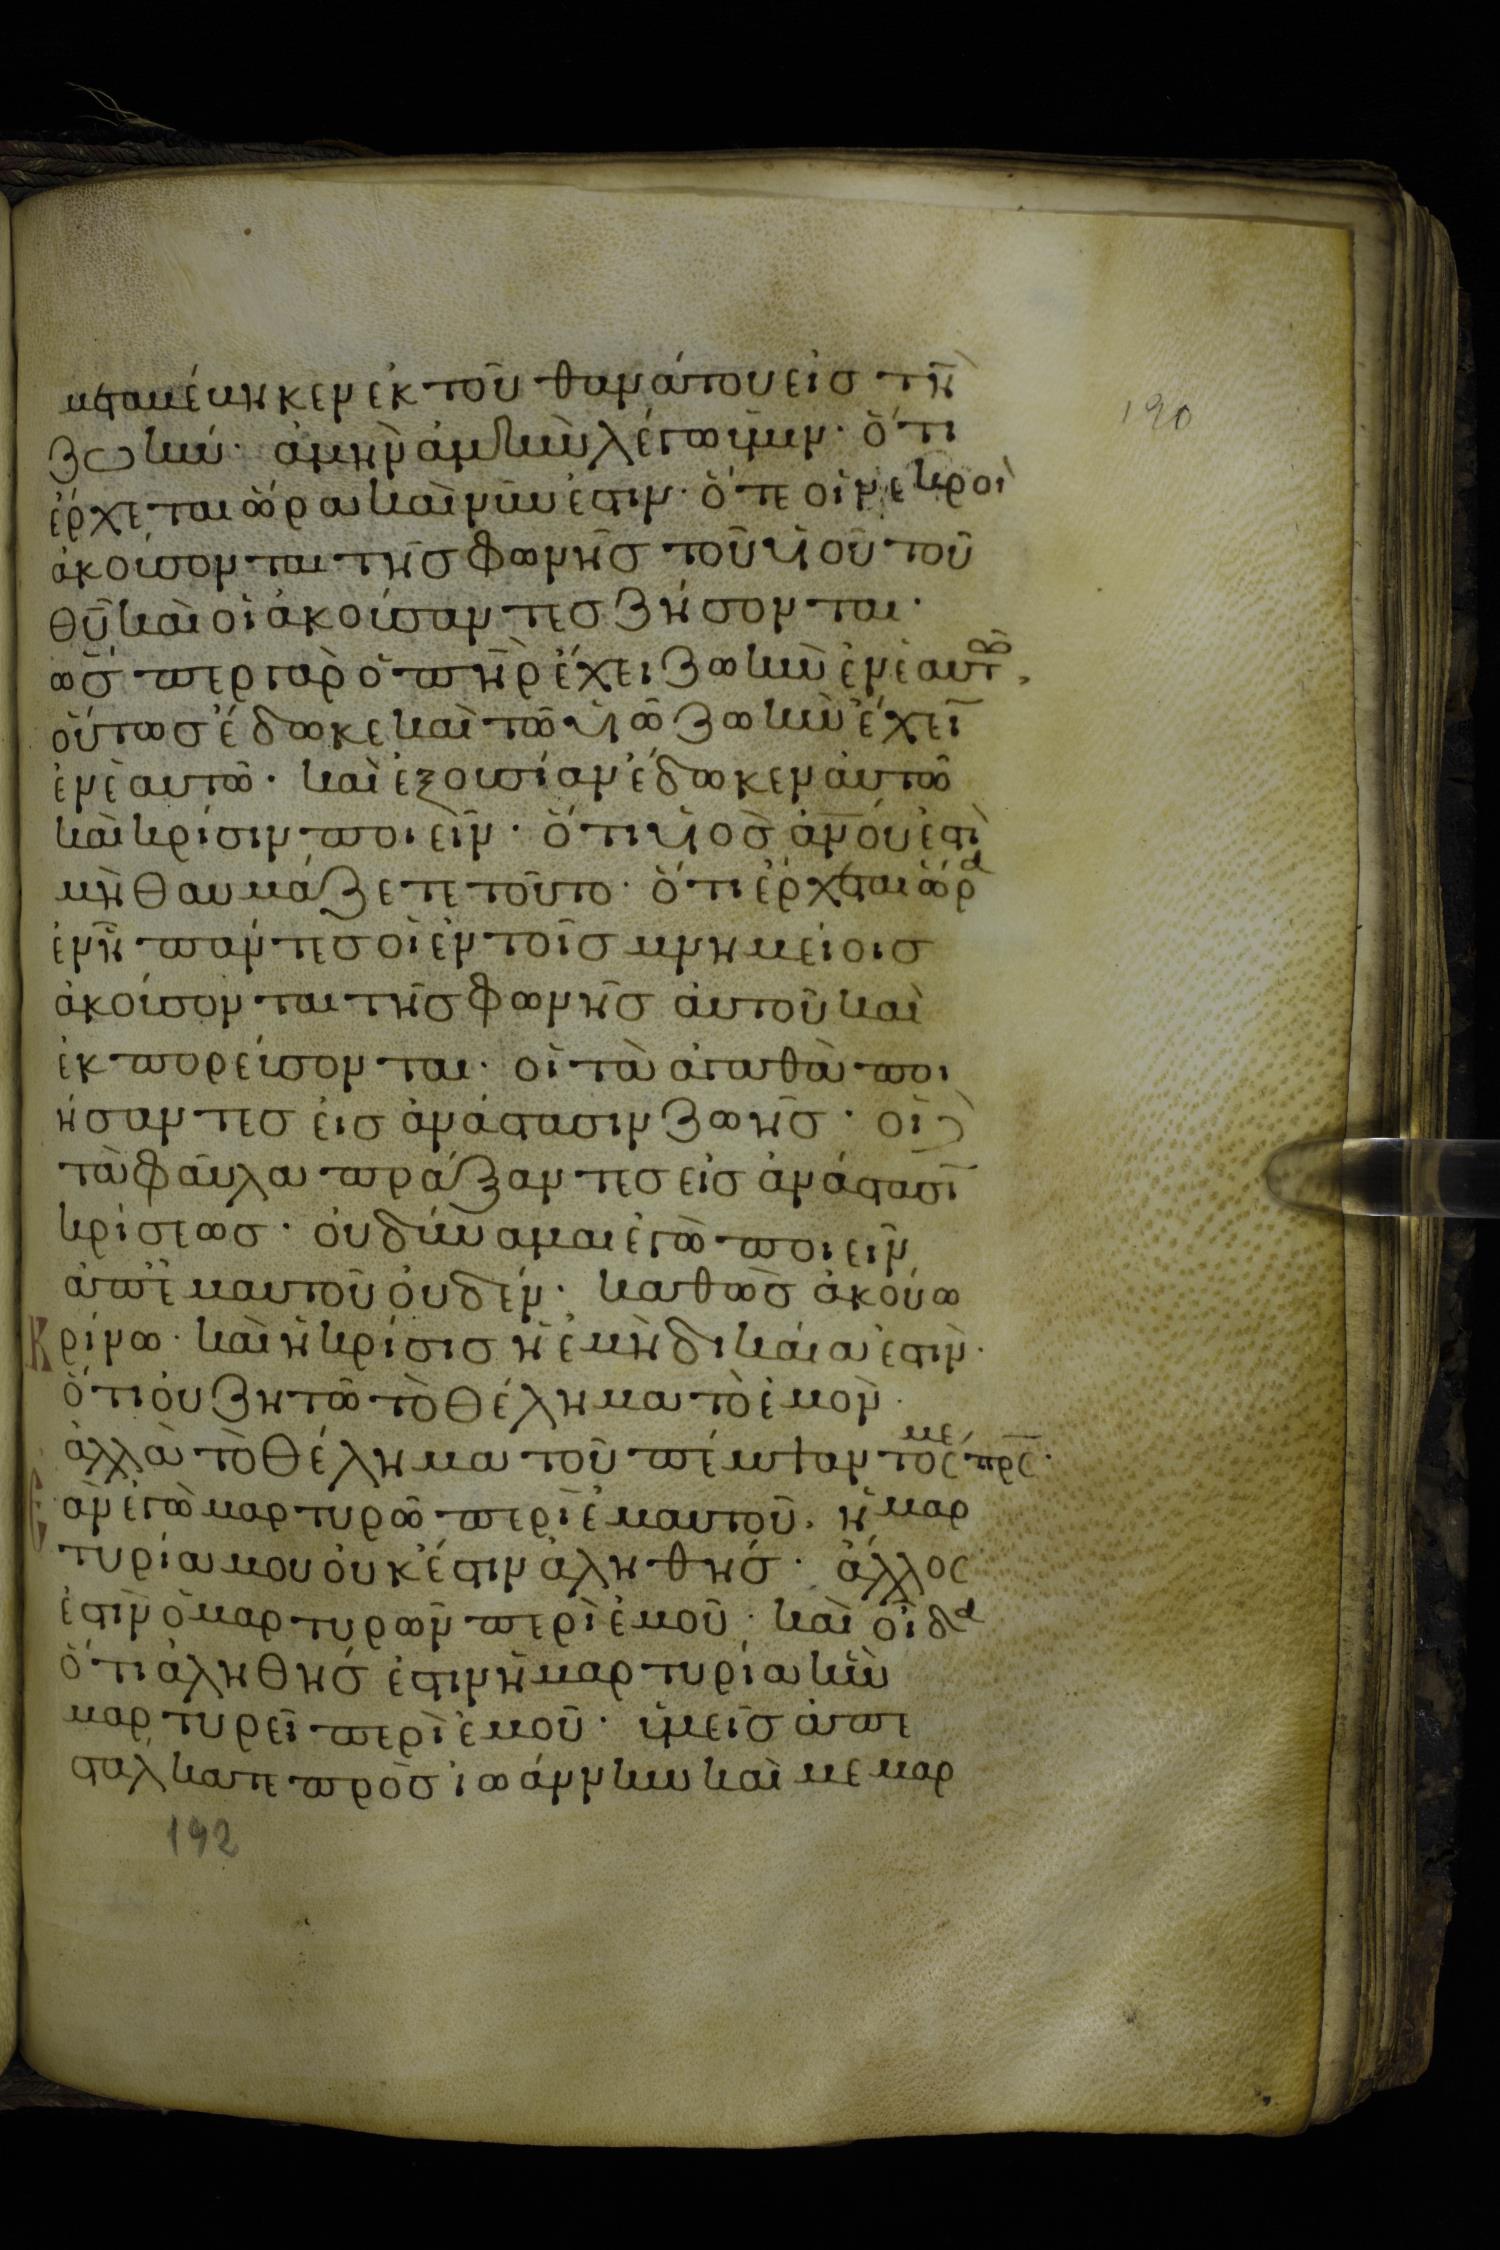 μεταβέβηκεν ἐκ τοῦ θανάτου εἰς τὴν
ζωήν· ἀμὴν ἀμὴν λέγω ὑμῖν· ὅτι
ἔρχεται ὥρα καὶ νῦν ἐστιν· ὅτε οἱ νεκροὶ
ἀκούσονται τῆς φωνῆς τοῦ υἱοῦ τοῦ
θῦ καὶ οἱ ἀκούσαντες ζήσονται·
ὥσπερ γὰρ ὁ πῆρ ἔχει ζωὴν ἐν ἑαυτῶ,
οὕτως ἔδωκε καὶ τῶ υἱῶ ζωὴν ἔχειν
ἐν ἑαυτῶ· καὶ ἐξουσίαν ἔδωκεν αὐτῶ
καὶ κρίσιν ποιεῖν· ὅτι υἱὸς ἀνού ἐστὶ
μὴ θαυμάζετε τοῦτο· ὅτι ἔρχεται ὥρα
ἐν ῇ πάντες οἱ ἐν τοῖς μνημείοις
ἀκούσονται τῆς φωνῆς αὐτοῦ καὶ
ἐκπορεύσονται· οἱ τὰ ἀγαθὰ ποι
ήσαντες εἰς ἀνάστασιν ζωῆς· οἱ δὲ
τὰ φαῦλα πράξαντες εἰς ἀνάστασιν
κρίσεως· οὐ δύναμαι ἐγὼ ποιεῖν
ἀπ' ἐμαυτοῦ οὐδέν· καθὼς ἀκούω
κρίνω· καὶ ἡ κρίσις ἡ ἐμὴ δικαία ἐστὶν·
ὅτι οὐ ζητῶ τὸ θέλημα τὸ ἐμὸν·
ἀλλὰ τὸ θέλημα τοῦ πέμψαντός με πρς·
ἐὰν ἐγὼ μαρτυρῶ περὶ ἐμαυτοῦ, ἡ μαρ
τυρία μου οὐκ ἔστιν ἀληθής· ἄλλος
ἐστὶν ὁ μαρτυρῶν περὶ ἐμοῦ· καὶ οἶδα
ὅτι ἀληθής ἐστιν ἡ μαρτυρία ἣν
μαρτυρεῖ περὶ ἐμοῦ· ὑμεῖς ἀπε
στάλκατε πρὸς ἰωάννην καὶ μεμαρ
190
192